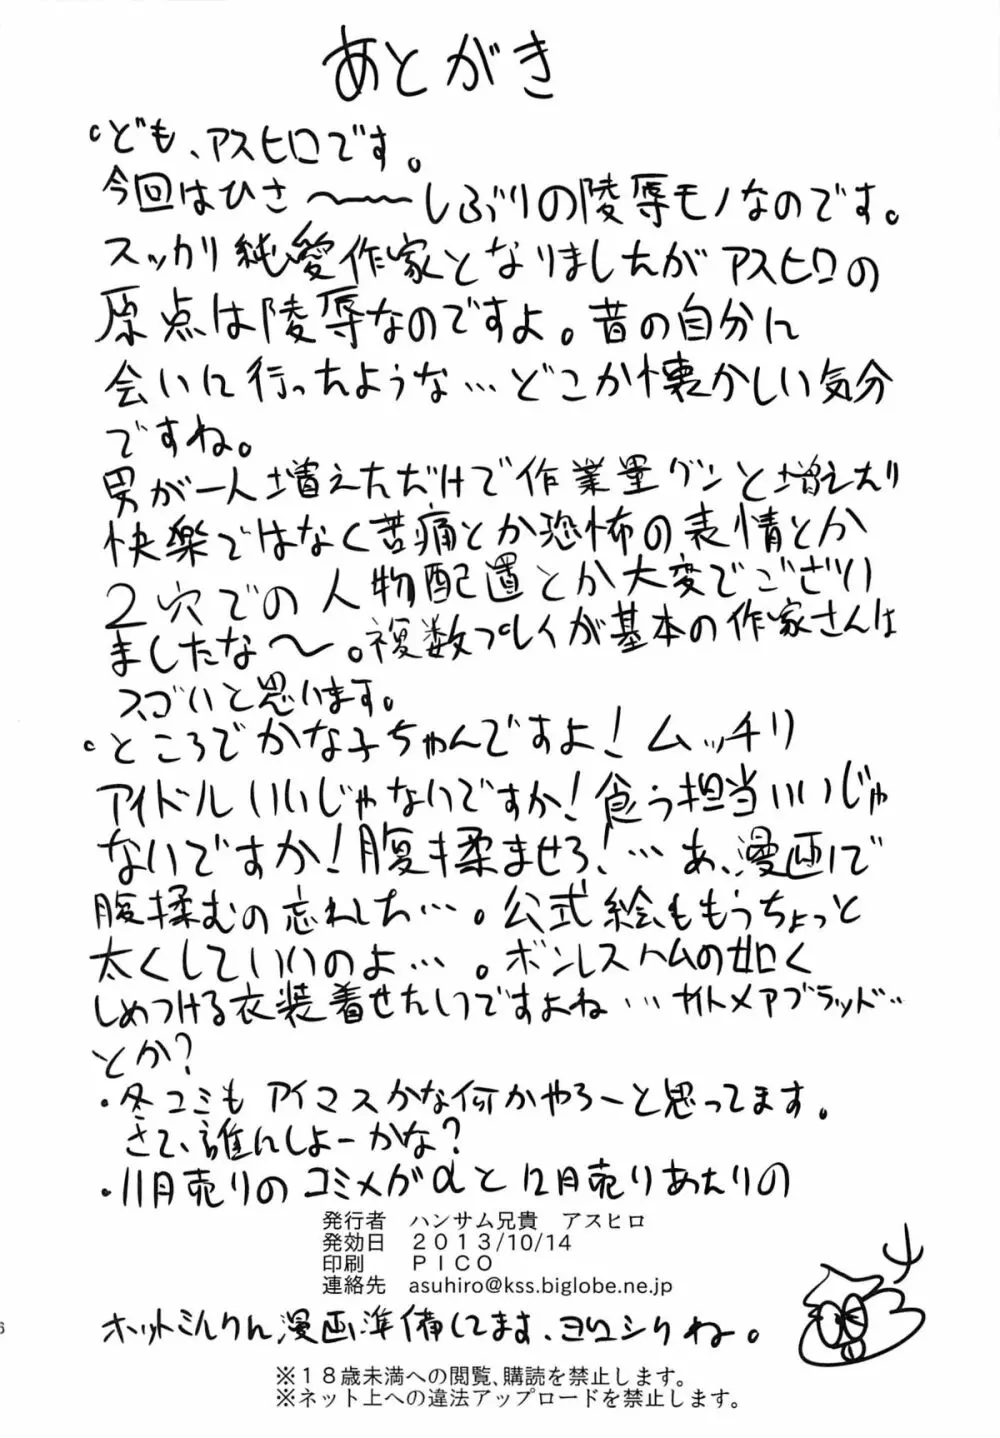 あとがき
ども、アスヒロです。
今回はひさ〜〜〜しぶりの陵辱モノなのです。
スッカリ純愛作家となりましたがアスヒロの
原点は陵辱なのですよ。昔の自分に
会いに行ったような…どこか懐かしい気分
ですね。
男が一人増えただけで作業量グンと増えたり
快楽ではなく苦痛とか恐怖の表情とか
2穴での人物配置とか大変でござい
ましたな〜。複数プレイが基本の作家さんは
スゴいと思います。
ところでかな子ちゃんですよ!ムッチリ
アイドルいいじゃないですか!食う担当いいじゃ
ないですか!腹揉ませろ!…あ、漫画で
腹揉むの忘れした…。公式絵ももうちょっと
太くしていいのよ…。ボンレスハムの如く
しめつける衣装着せたいですよね…ナイトメアブラッド…
とか?
・冬コミもアイマスかな何かやろーと思ってます。
さて、誰んしよーかな?
・11月売りのコミメガαと12月売りあたりの
発行者 ハンサム兄貴 アスヒロ
発効日 2013/10/14
印刷 PICO
連絡先 asuhiro@kss.biglobe.ne.jp
ホットミルクん漫画準備してます、ヨロシクね。
※18歳未満への閲覧、購読を禁止します。
※ネット上への違法アップロードを禁止します。
6